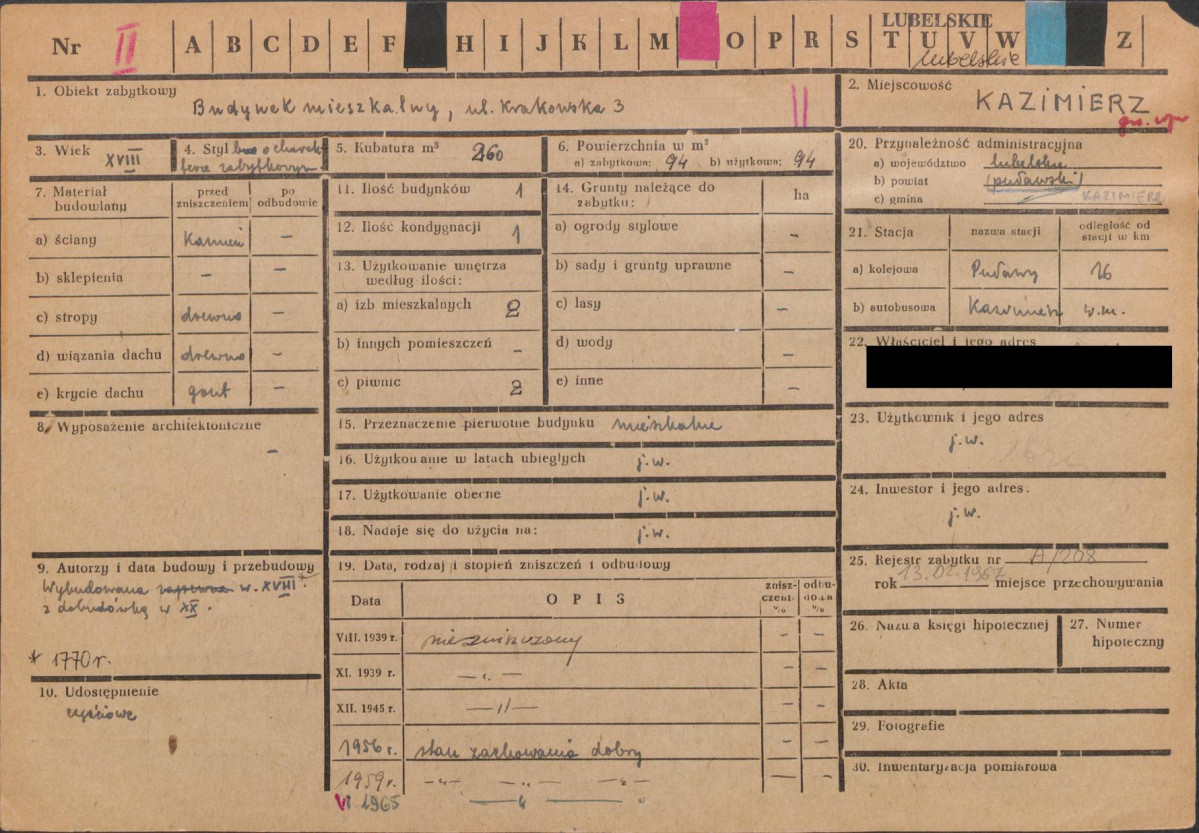 LUBELSKIE
Nr II A B C D E F H I J K L M O P R S T U V W Z
lubelskie
1. Obiekt zabytkowy
Budynek mieszkalny, ul. Krakowska 3 II
2. Miejscowość
KAZIMIERZ
3. Wiek XVIII
4. Styl bez o charak-
terze zabytkowym
5. Kubatura m³ 260
6. Powierzchnia w m²
a) zabytkowa: 94 b) użytkowa: 94
7. Materiał budowlany
przed zniszczeniem
po odbudowie
a) ściany kamień —
b) sklepienia — —
c) stropy drewno —
d) wiązania dachu drewno —
e) krycie dachu gont —
8. Wyposażenie architektoniczne
—
9. Autorzy i data budowy i przebudowy
Wybudowana zapewne w. XVIII *
z dobudówką w XX.
* 1770 r.
10. Udostępnienie
częściowe
11. Ilość budynków 1
12. Ilość kondygnacji 1
13. Użytkowanie wnętrza
według ilości:
a) izb mieszkalnych 2
b) innych pomieszczeń —
c) piwnic 2
14. Grunty należące do
zabytku: ha
a) ogrody stylowe —
b) sady i grunty uprawne —
c) lasy —
d) wody —
e) inne —
15. Przeznaczenie pierwotne budynku mieszkalne
16. Użytkowanie w latach ubiegłych j.w.
17. Użytkowanie obecne j.w.
18. Nadaje się do użycia na: j.w.
19. Data, rodzaj i stopień zniszczeń i odbudowy
Data OPIS
znisz-
czeni. %
odbu-
dowa %
VIII. 1939 r. niezniszczony — —
XI. 1939 r. —„— — —
XII. 1945 r. —„— — —
1956 r. stan zachowania dobry — —
1959 r. —„— —„— —„— — —
VI 1965 —„—
20. Przynależność administracyjna
a) województwo lubelskie
b) powiat (puławski)
c) gmina KAZIMIERZ
21. Stacja
nazwa stacji
odległość od
stacji w km
a) kolejowa Puławy 16
b) autobusowa Kazimierz w.m.
22. Właściciel i jego adres
23. Użytkownik i jego adres
j.w.
24. Inwestor i jego adres.
j.w.
25. Rejestr zabytku nr A/208
rok 13.02.1967 miejsce przechowywania
26. Nazwa księgi hipotecznej
27. Numer
hipoteczny
28. Akta
29. Fotografie
30. Inwentaryzacja pomiarowa